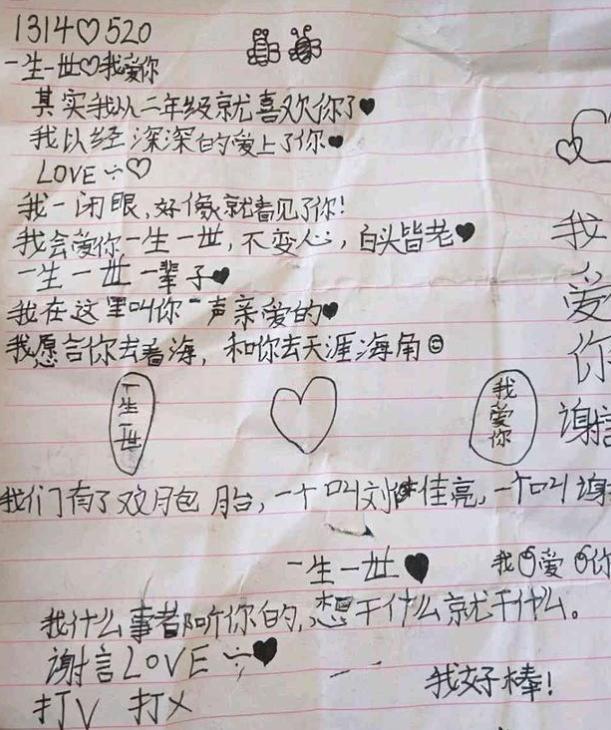 1314♡520
一生一世♡我爱你
其实我从二年级就喜欢你了♥
我以经深深的爱上了你♥
LOVE ÷♡
我一闭眼,好像就看见了你!
我会爱你一生一世,不变心,白头皆老♥
一生一世一辈子♥
我在这里叫你一声亲爱的♥
我愿言你去看海,和你去天涯海角☺
一生一世
我爱你
我爱你谢言
我们有了双月包月台,一个叫刘佳亮,一个叫谢
一生一世♥
我爱你
我什么事者听你的,想干什么就干什么。
谢言LOVE÷♥
我好棒!
打V 打X